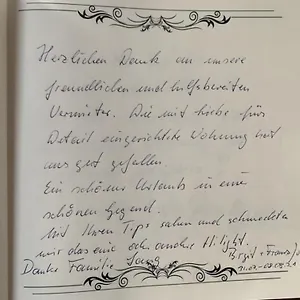 Herzlichen Dank an unsere
freundlichen und hilfsbereiten
Vermieter. Die mit Liebe fürs
Detail eingerichtete Wohnung hat
uns gut gefallen.
Ein schöner Urlaub in eine
schönen Gegend.
Mit Ihren Tipps sahen und schmeckten
wir das eine od. andre Highlight.
Danke Familie Birgit + Franz